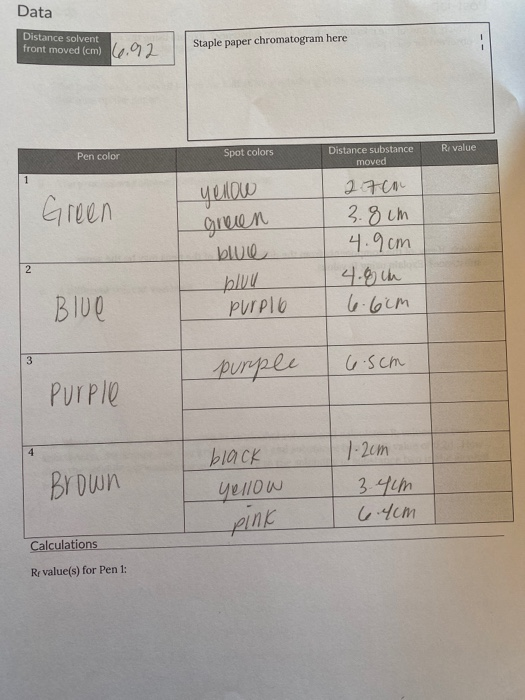 Data
Distance solvent front moved (cm) 6.92
Staple paper chromatogram here
Pen color Spot colors Distance substance moved Rf value
1 Green yellow 2.7cm
green 3.8cm
blue 4.9cm
2 Blue blue 4.8cm
purple 6.6cm
3 Purple purple 6.5cm
4 Brown black 1.2cm
yellow 3.4cm
pink 6.4cm
Calculations
Rf value(s) for Pen 1: